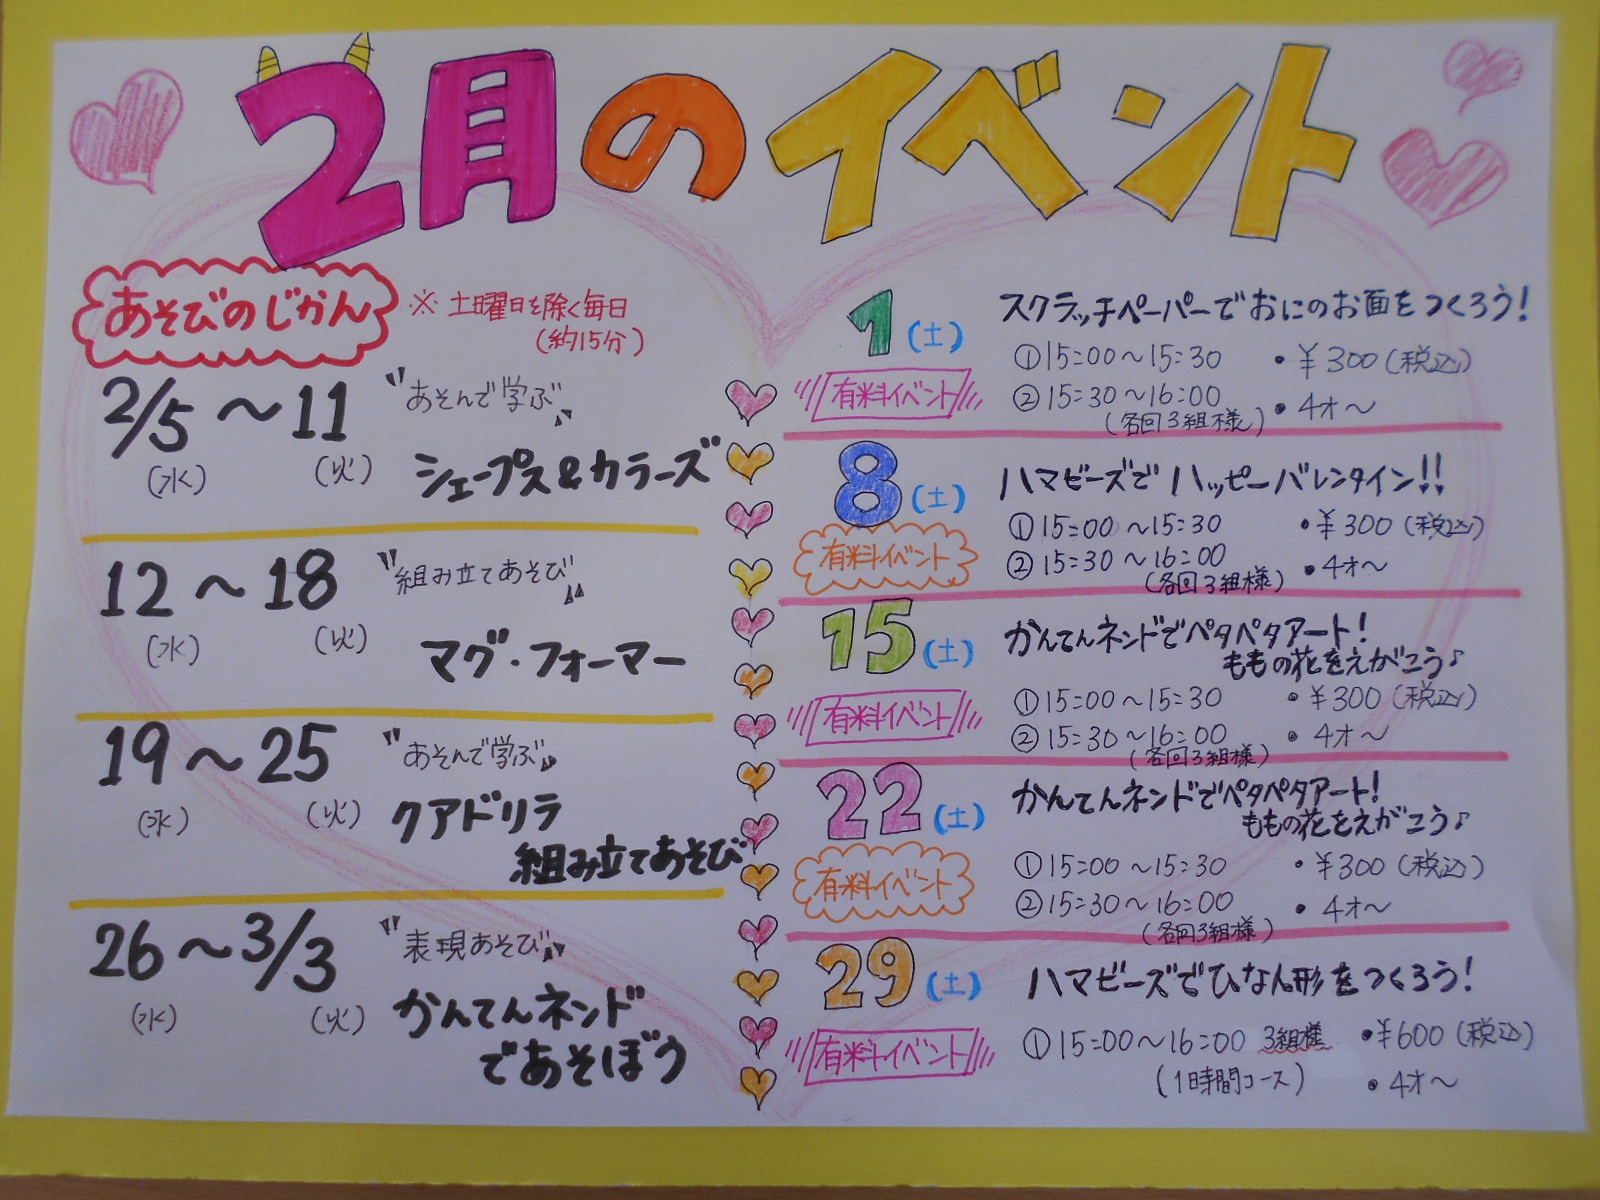 2月のイベント
あそびのじかん
※土曜日を除く毎日
(約15分)
2/5～11
(水) (火)
"あそんで学ぶ"
シェープス&カラーズ
12～18
(水) (火)
"組み立てあそび"
マグ・フォーマー
19～25
(水) (火)
"あそんで学ぶ"
クアドリラ
組み立てあそび
26～3/3
(水) (火)
"表現あそび"
かんてんネンド
であそぼう
1(土)
有料イベント
スクラッチペーパーでおにのお面をつくろう!
①15:00～15:30 ・¥300(税込)
②15:30～16:00 ・4才～
(各回3組様)
8(土)
有料イベント
ハマビーズでハッピーバレンタイン!!
①15:00～15:30 ・¥300(税込)
②15:30～16:00 ・4才～
(各回3組様)
15(土)
有料イベント
かんてんネンドでペタペタアート!
ももの花をえがこう♪
①15:00～15:30 ・¥300(税込)
②15:30～16:00 ・4才～
(各回3組様)
22(土)
有料イベント
かんてんネンドでペタペタアート!
ももの花をえがこう♪
①15:00～15:30 ・¥300(税込)
②15:30～16:00 ・4才～
(各回3組様)
29(土)
有料イベント
ハマビーズでひな人形をつくろう!
①15:00～16:00 3組様 ・¥600(税込)
(1時間コース) ・4才～